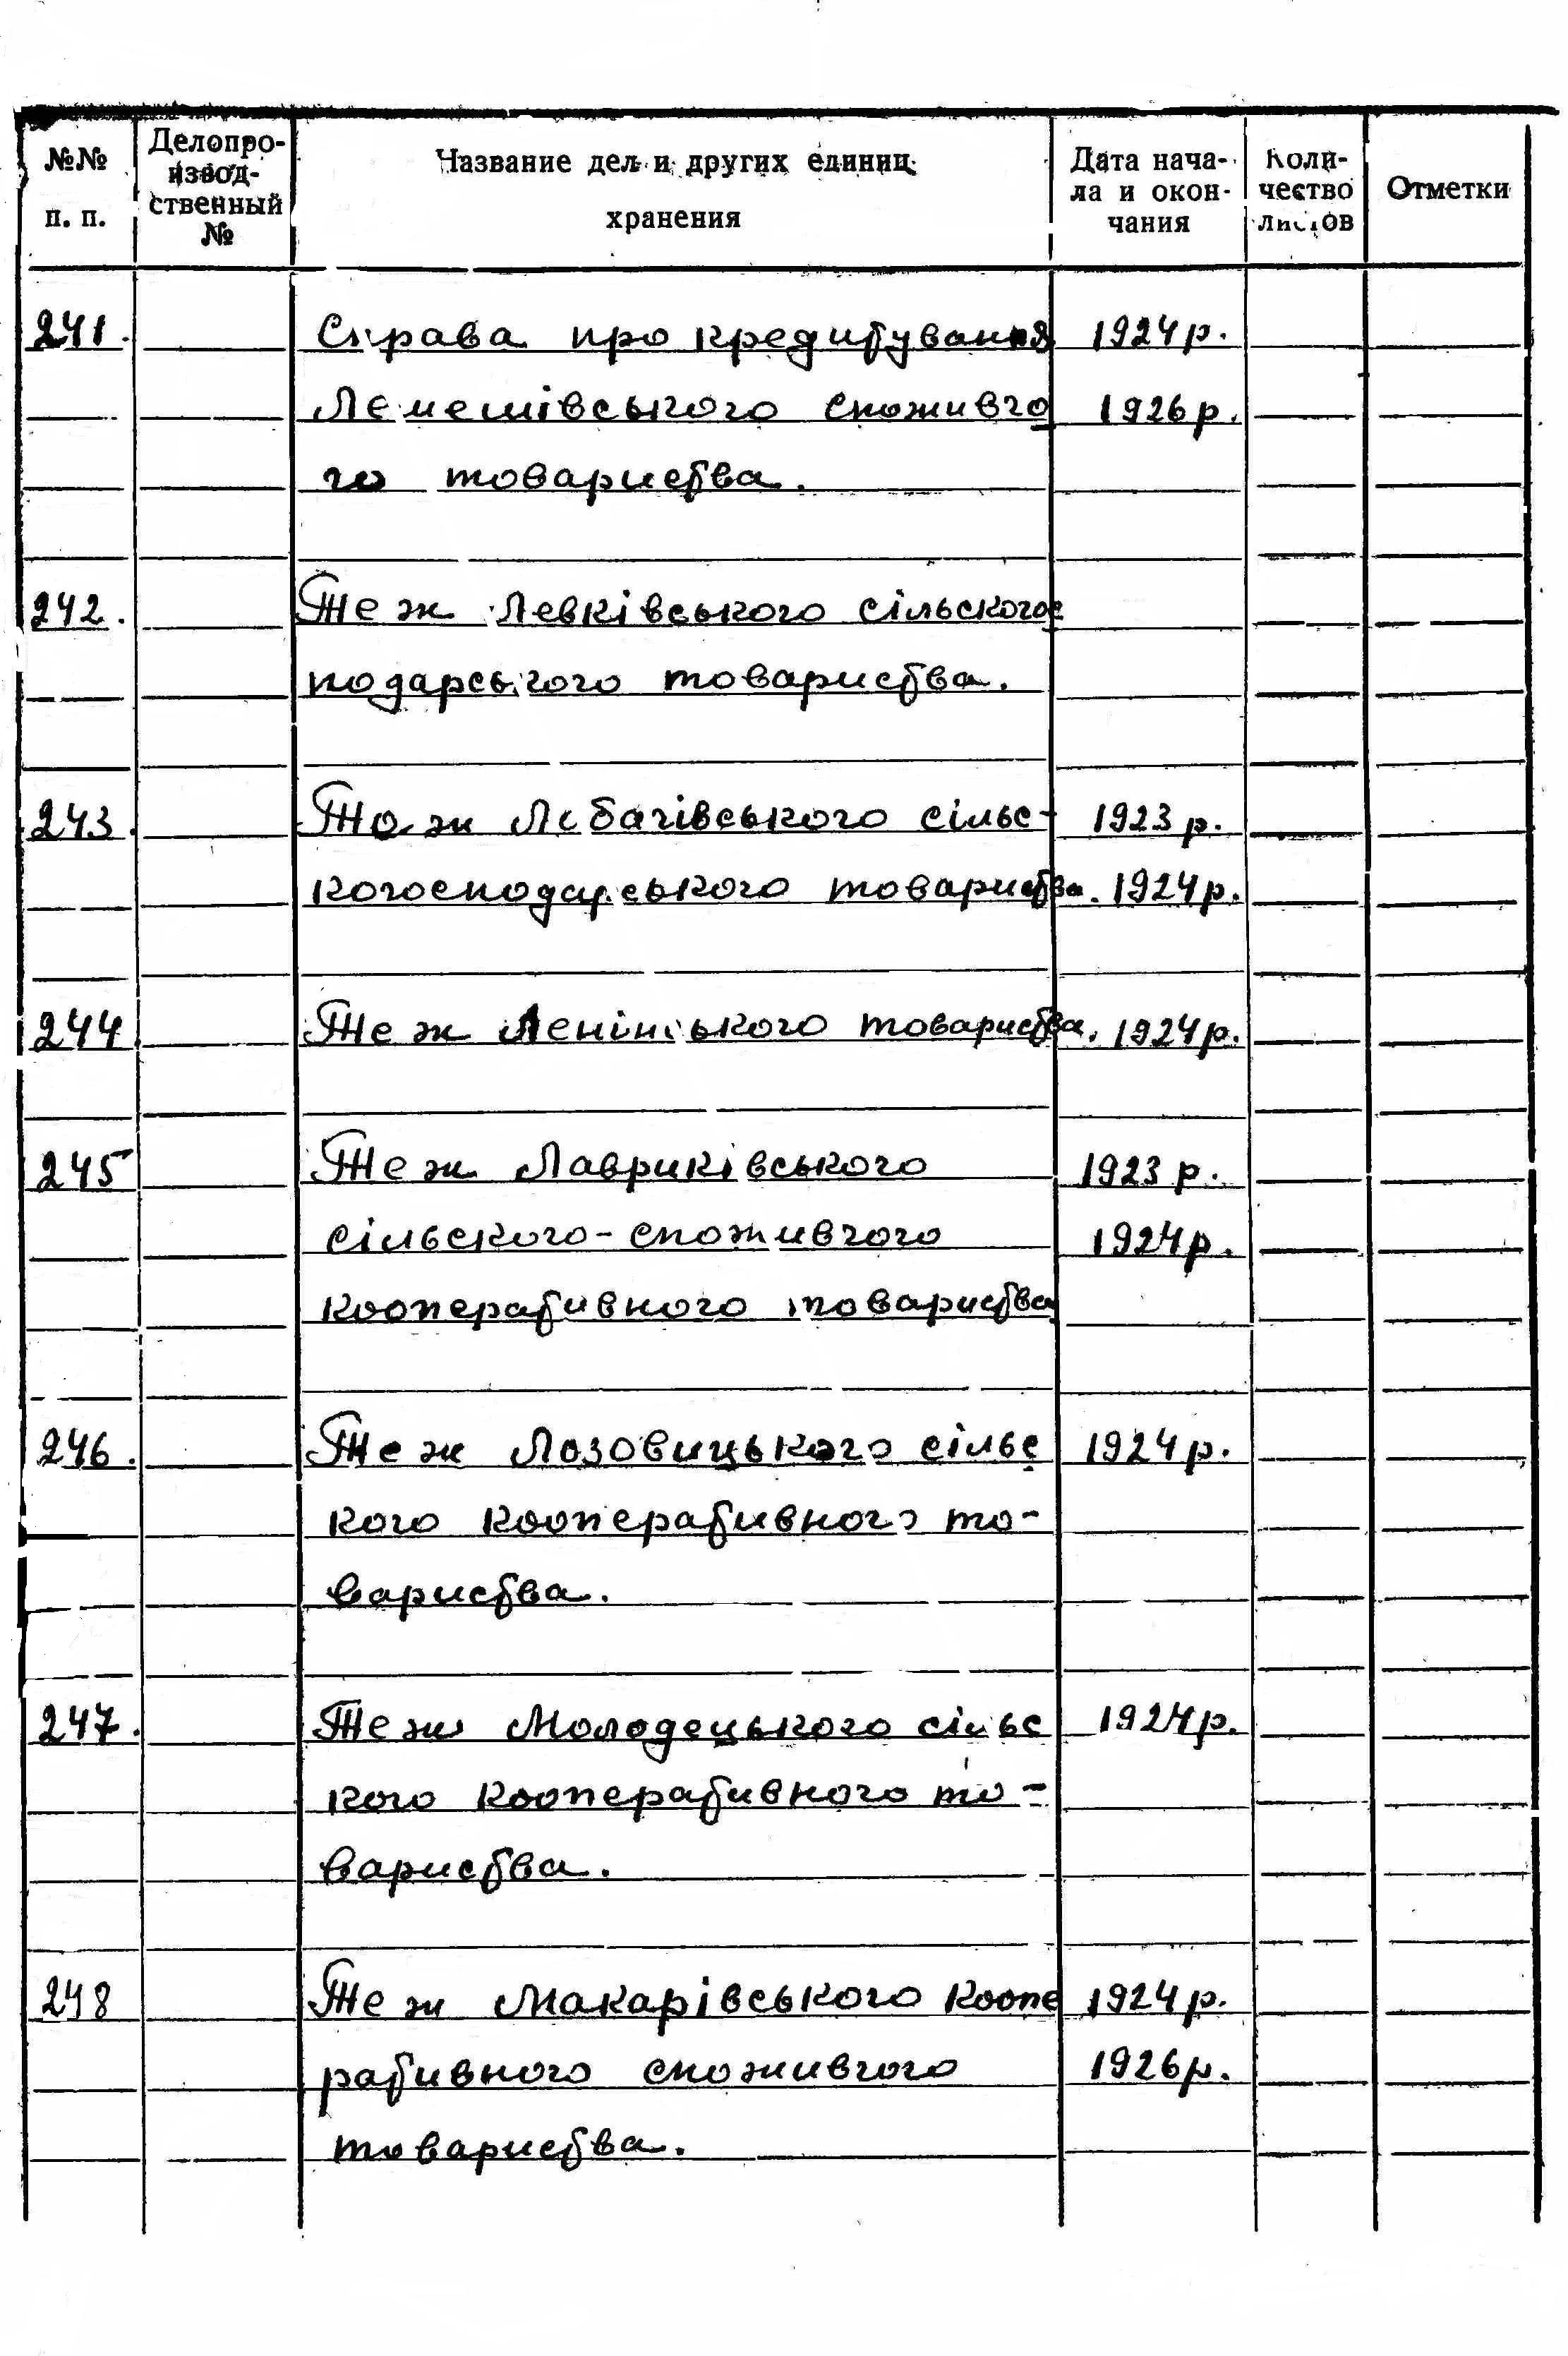 №№ п. п.
Делопро-
извод-
ственный
№
Название дел и других единиц
хранения
Дата нача-
ла и окон-
чания
Коли-
чество
листов
Отметки
241. Справа про кредитування 1924 р.
Лемешівського споживчо 1926 р.
го товариства.
242. Те ж Левківського сільского с
подарського товариства.
243. То ж Лобачівського сільс- 1923 р.
когосподарського товариства. 1924 р.
244 Те ж Ленінського товариства. 1924 р.
245 Те ж Лавриківського 1923 р.
сільського-споживчого 1924 р.
кооперативного товариства
246. Те ж Лозовицького сільс 1924 р.
кого кооперативного то-
вариства.
247. Те ж Молодецького сільс 1924 р.
кого кооперативного то-
вариства.
248 Те ж Макарівського коопе 1924 р.
ративного споживчого 1926 р.
товариства.